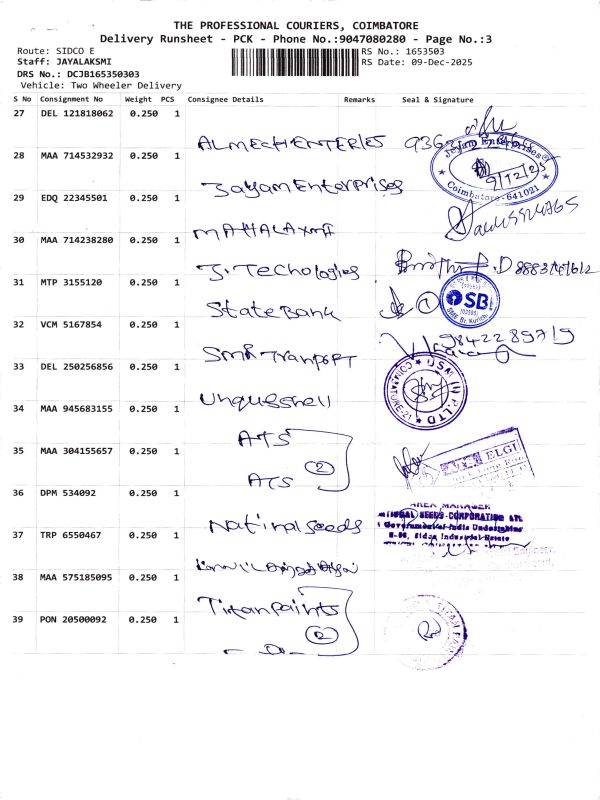 THE PROFESSIONAL COURIERS, COIMBATORE
Delivery Runsheet - PCK - Phone No.:9047080280 - Page No.:3
Route: SIDCO E
RS No.: 1653503
Staff: JAYALAKSMI
RS Date: 09-Dec-2025
DRS No.: DCJB165350303
Vehicle: Two Wheeler Delivery
S No Consignment No Weight PCS Consignee Details Remarks Seal & Signature
27 DEL 121818062 0.250 1
ALMECH ENTERIES
28 MAA 714532932 0.250 1
Jayam Enterprises
Jayam Enterprises
9/12/25
Coimbatore-641021
29 EDQ 22345501 0.250 1
MAHALAXMI
30 MAA 714238280 0.250 1
J. Techologies
31 MTP 3155120 0.250 1
State Bank
SB
32 VCM 5167854 0.250 1
SMR Tranport
9842289719
33 DEL 250256856 0.250 1
34 MAA 945683155 0.250 1
ATS
35 MAA 304155657 0.250 1
ATS 2
ELGI
36 DPM 534092 0.250 1
National Seeds
AREA MANAGER
SEEDS CORPORATION
Government of India
Sidco Industrial Estate
37 TRP 6550467 0.250 1
38 MAA 575185095 0.250 1
Titan paints
39 PON 20500092 0.250 1
2